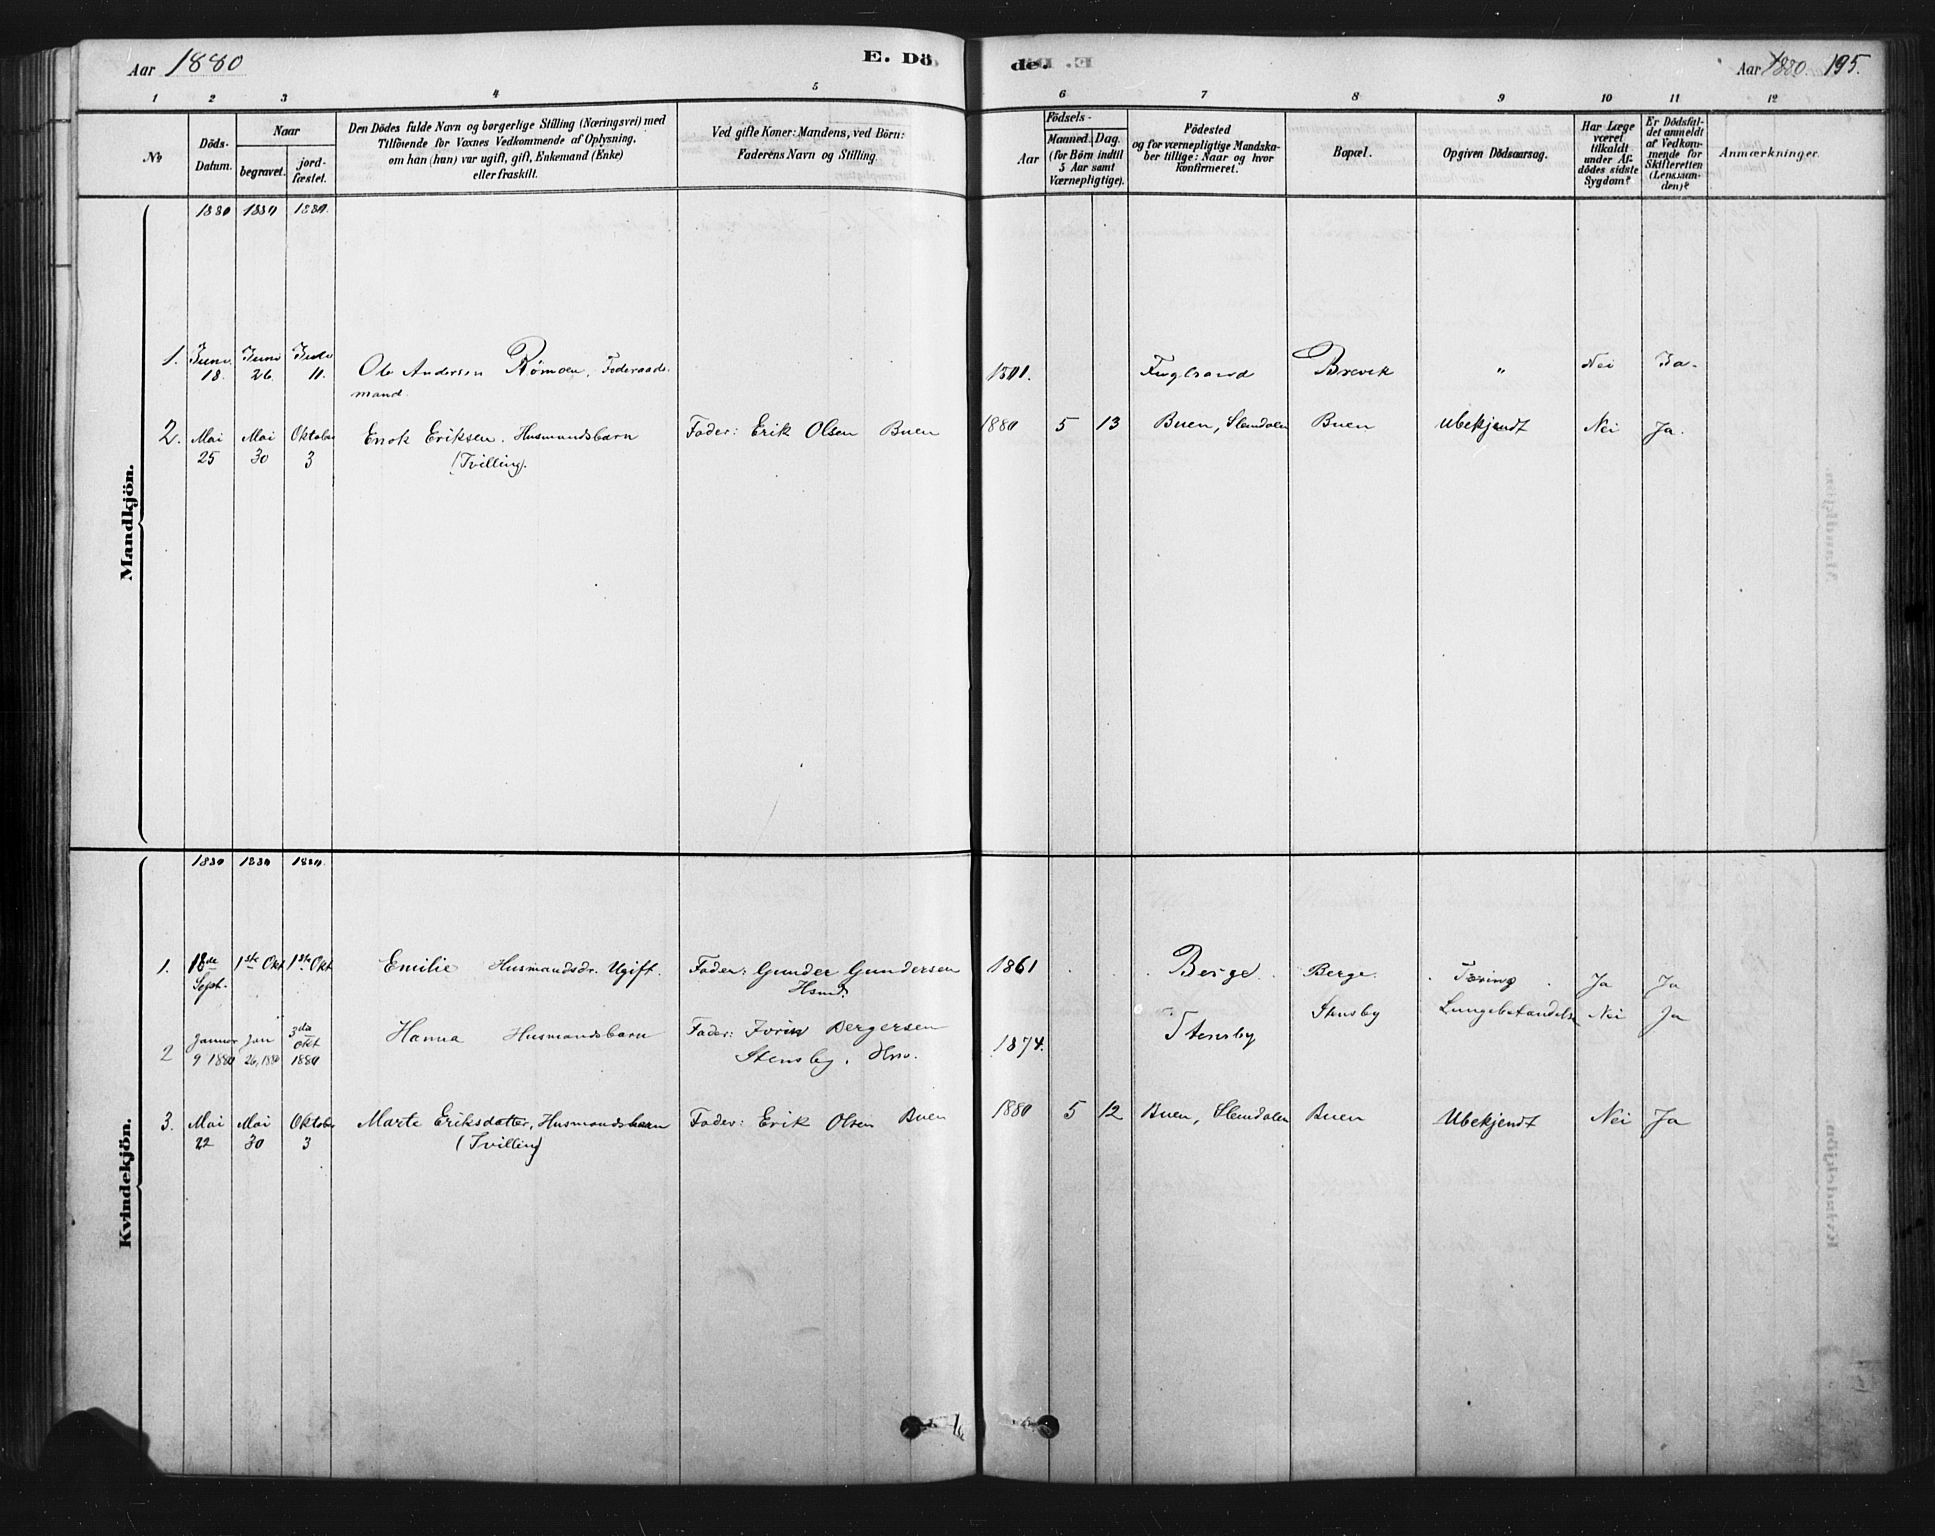 Aar 1880
E. Dö
de.
Aar 1880. 195.
1 2 3 4 5 6 7 8 9 10 11 12
No
Döds-
Datum.
Naar
begravet.
jord-
fæstet.
Den Dödes fulde Navn og borgerlige Stilling (Næringsvei) med
Tilföiende for Voxnes Vedkommende af Oplysning,
om han (hun) var ugift, gift, Enkemand (Enke)
eller fraskilt.
Ved gifte Koner: Mandens, ved Börn:
Faderens Navn og Stilling.
Födsels-
Aar
Maaned. Dag.
(for Börn indtil
5 Aar samt
Værnepligtige).
Födested
og for værnepligtige Mandska-
ber tillige: Naar og hvor
konfirmeret.
Bopæl.
Opgiven Dödsaarsag.
Har Læge
været
tilkaldt
under Af-
dödes sidste
Sygdom?
Er Dödsfal-
det anmeldt
af Vedkom-
mende for
Skifteretten
(Lensman-
den)?
Anmærkninger.
Mandkjön.
1880 1880 1880.
1. Juni 18. Juni 26. Juli 11. Ole Andersen Rømoen, Føderaads-
mand. 1801. Fuglsand Brevik " Nei Ja.
2. Mai 25 Mai 30 Oktober 3 Enok Eriksen, Husmandsbarn Fader: Erik Olsen Buen 1880 5 13 Buen, Slemdalen Buen Ubekjendt Nei Ja.
(Tvilling).
Kvindekjön.
1880 1880 1880.
1. 18de Sept. 1ste Okt 1ste Okt Emilie Husmandsdr. Ugift. Fader: Gunder Gundersen
Hsmd. 1861 Berge. Berge. Tæring. Ja Ja
2 Januar 9 1880 Jan 26, 1880 3die Okt 1880 Hanna Husmandsbarn Fader: Bergersen
Stensby, 1874. Stensby Stensby Nei Ja
3. Mai 22 Mai 30 Oktober 3 Marte Eriksdatter, Husmandsbarn Fader: Erik Olsen Buen 1880 5 12 Buen, Slemdalen Buen Ubekjendt Nei Ja
(Tvilling)